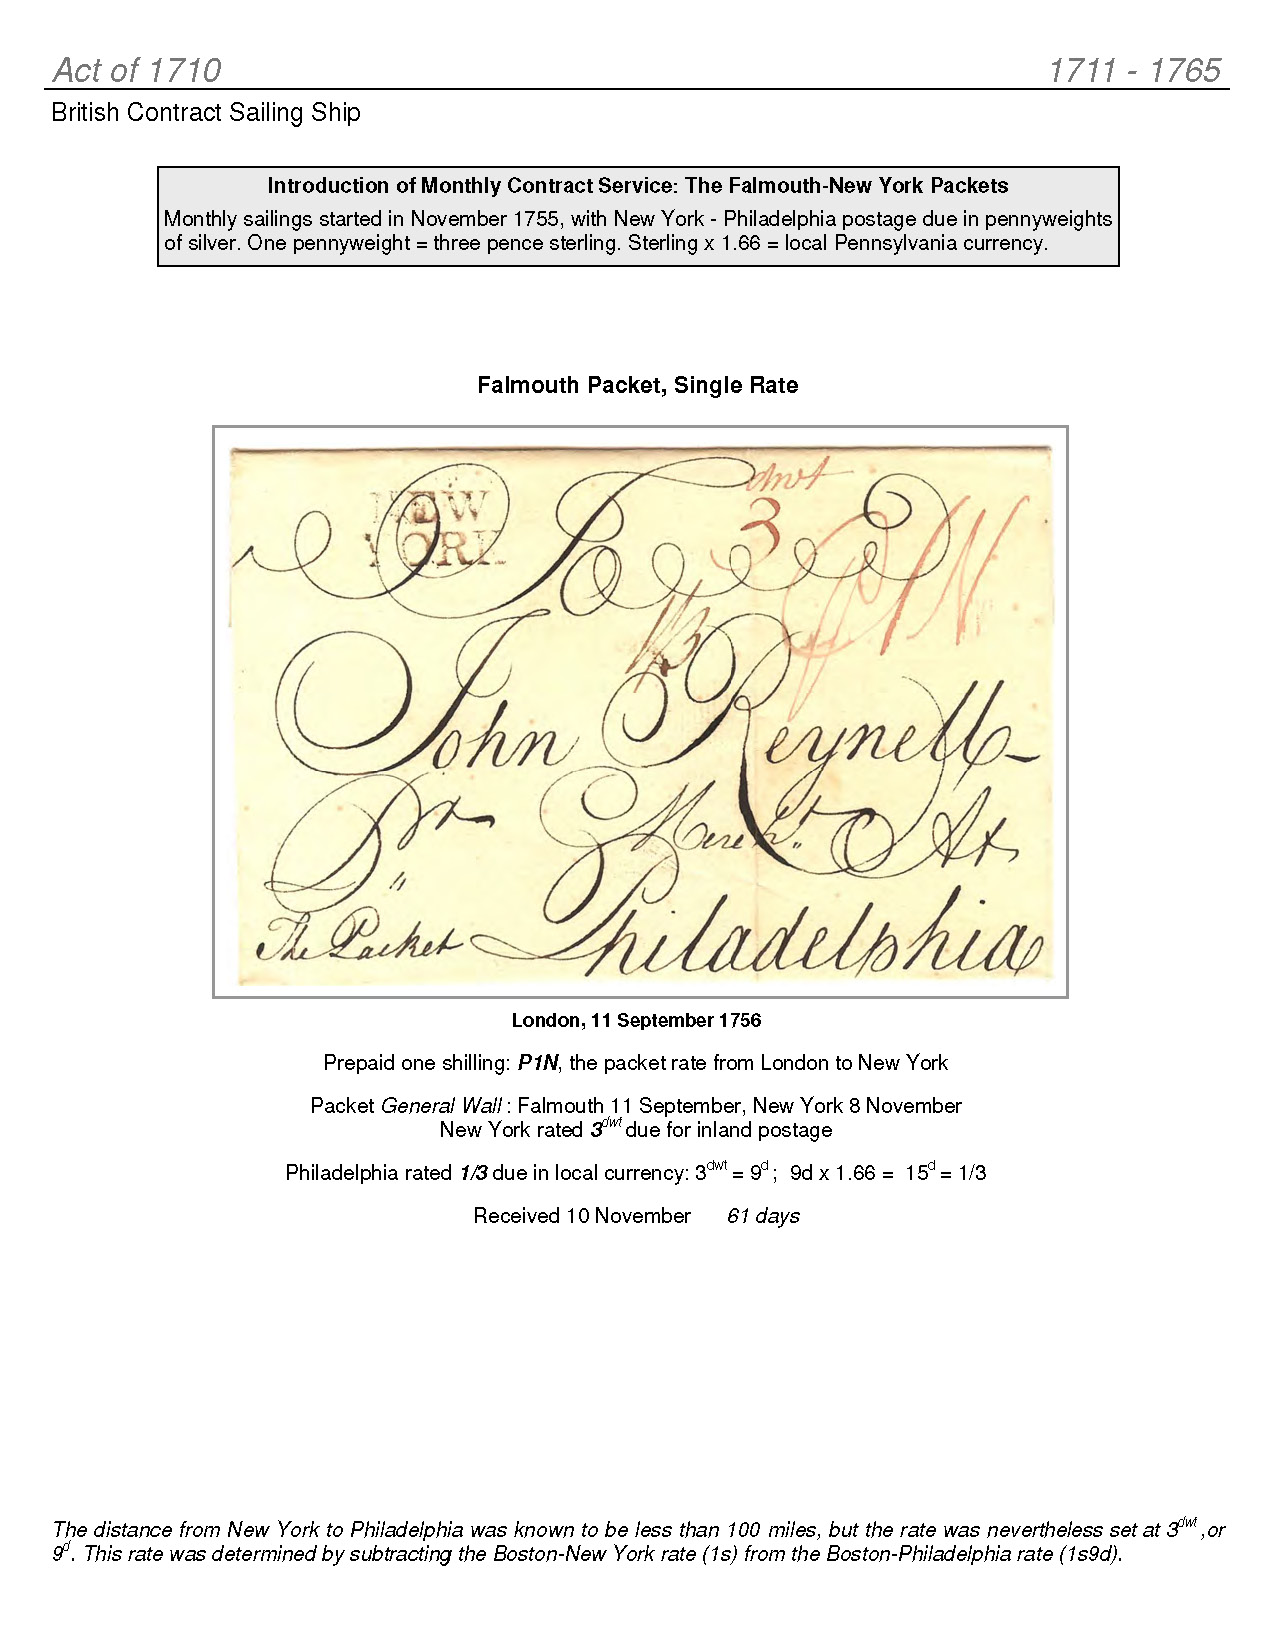 Act of 1710 1711 - 1765
British Contract Sailing Ship
Introduction of Monthly Contract Service: The Falmouth-New York Packets
Monthly sailings started in November 1755, with New York - Philadelphia postage due in pennyweights
of silver. One pennyweight = three pence sterling. Sterling x 1.66 = local Pennsylvania currency.
Falmouth Packet, Single Rate
dwt
NEW
YORK
3
To
P1N
1/3
John Reynell
Mercht. At
Pr
"
The Packet
Philadelphia
London, 11 September 1756
Prepaid one shilling: P1N, the packet rate from London to New York
Packet General Wall : Falmouth 11 September, New York 8 November
New York rated 3dwt due for inland postage
Philadelphia rated 1/3 due in local currency: 3dwt = 9d ; 9d x 1.66 = 15d = 1/3
Received 10 November 61 days
The distance from New York to Philadelphia was known to be less than 100 miles, but the rate was nevertheless set at 3dwt ,or
9d. This rate was determined by subtracting the Boston-New York rate (1s) from the Boston-Philadelphia rate (1s9d).